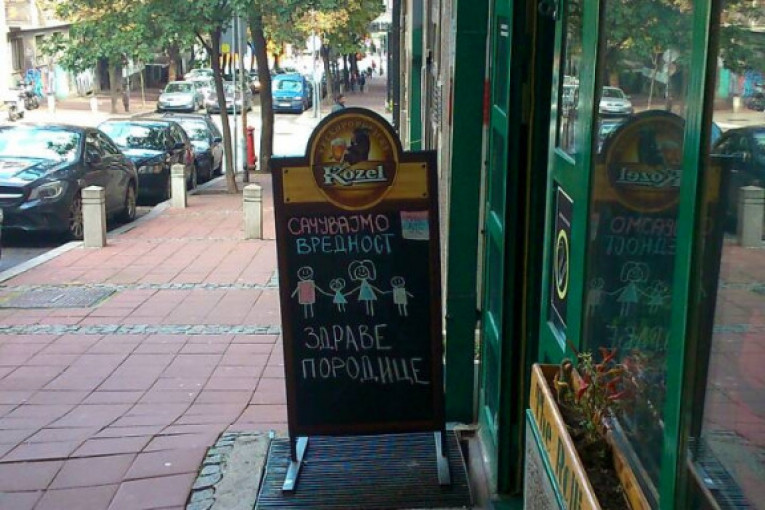 Kozel
САЧУВАЈМО
ВРЕДНОСТ
ЗДРАВЕ
ПОРОДИЦЕ